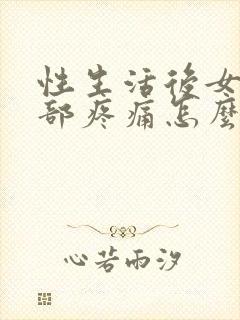 性生活後女
部疼痛怎麼
心若雨汐